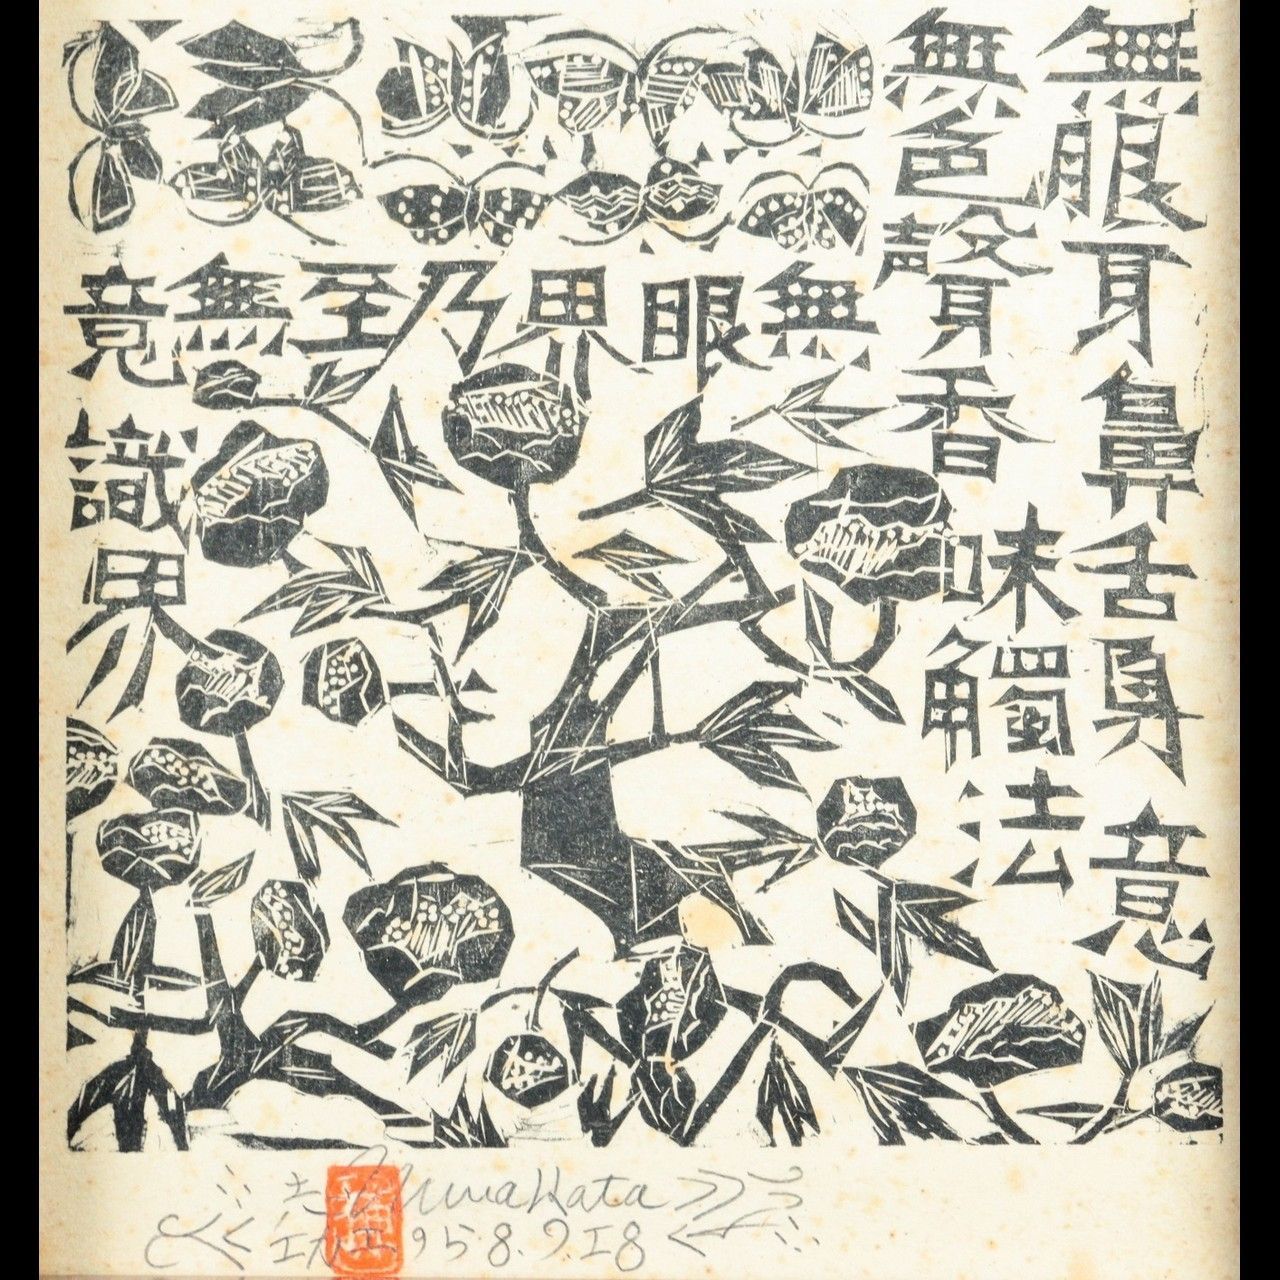 無眼耳鼻舌身意
無色聲香味觸法
無眼界乃至無意識界
志 Munakata
功 1958.9.18